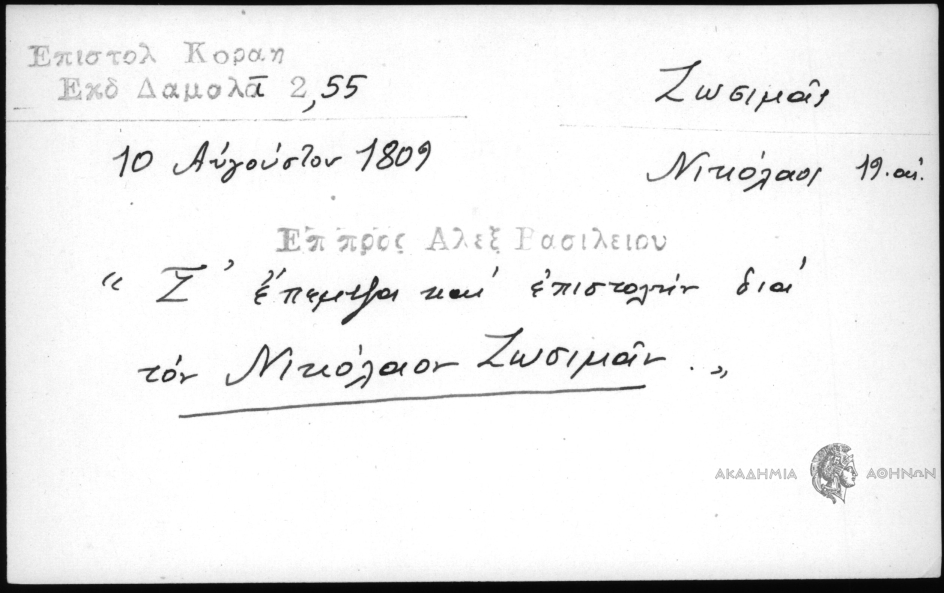 Επιστολ Κοραη
Εκδ Δαμαλᾶ 2,55
Ζωσιμᾶς
10 Αὐγούστου 1809
Νικόλαος 19. αἰ.
Επ προς Αλεξ Βασιλειου
“ Σ’ ἔπεμψα καὶ ἐπιστολὴν διὰ
τὸν Νικόλαον Ζωσιμᾶν . „
ΑΚΑΔΗΜΙΑ ΑΘΗΝΩΝ